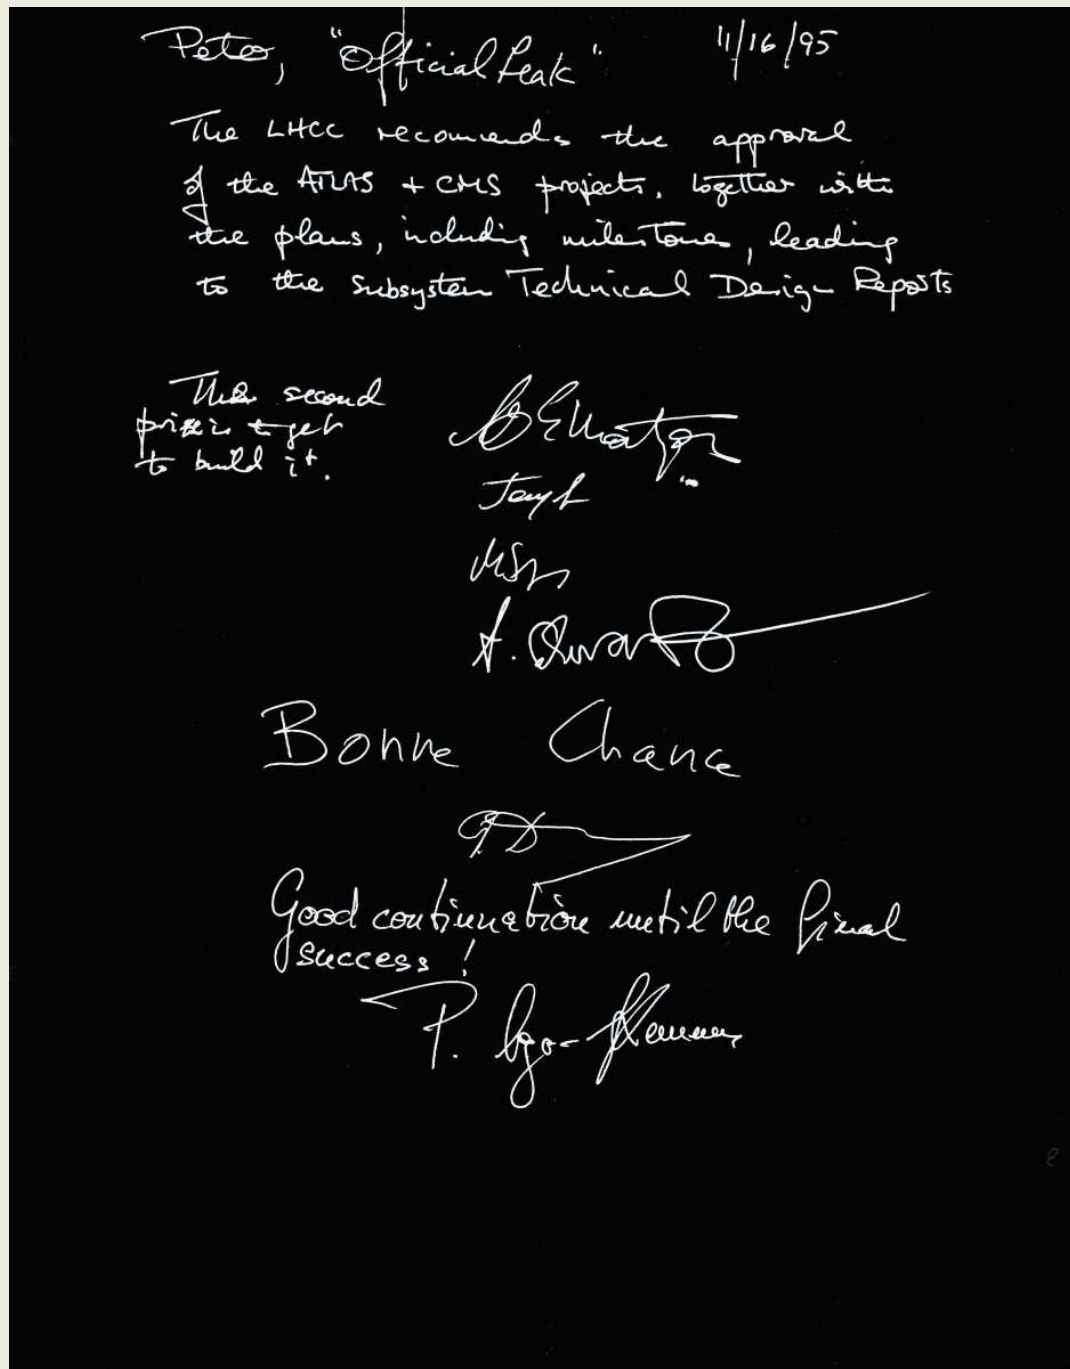 Peter, "Official Leak" 11/16/95
The LHCC recomends the approval
of the ATLAS + CMS projects, together with
the plans, including milestones, leading
to the subsystem Technical Design Reports
The second
prize is to get
to build it.
Bonne Chance
Good continuation until the final
success!
P.